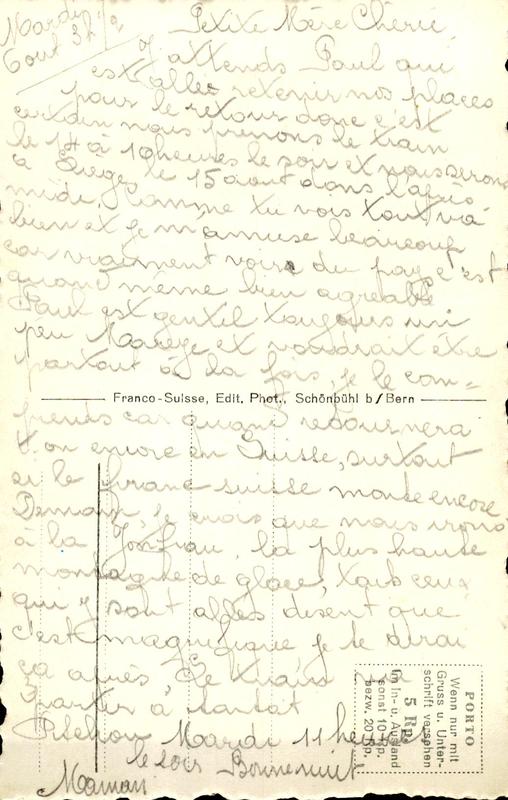 Mardi
6 aout 3
Petite Mère Chérie,
J attends Paul qui
est allé retenir nos places
pour le retour donc c'est
certain nous prenons le train
le 14 à 19 heures le soir et nous serons
à Liège le 15 aout dans l'après
midi, comme tu vois tout va
bien et je m'amuse beaucoup
car vraiment voire du pay c'est
quand même bien agréable
Paul est gentil toujours un
peu et voudrait être
partout à la fois, je le com=
Franco-Suisse, Edit. Phot., Schönbühl b/Bern
prends car quand retournera
t. on encore en Suisse, surtout
si le franc suisse monte encore
Demain, je crois que nous irons
à la Yonfrau, la plus haute
montagne de glace, tous ceux
qui y sont allés disent que
c'est magnifique je te dirai
ça après. Je vais
partir à
Mardi 11 heures
le soir Bonne nuit
Maman
PORTO
Wenn nur mit
Gruss u. Unter-
schrift versehen
5 Rp.
im In- u. Ausland
sonst 10 Rp.
bezw. 20 Rp.